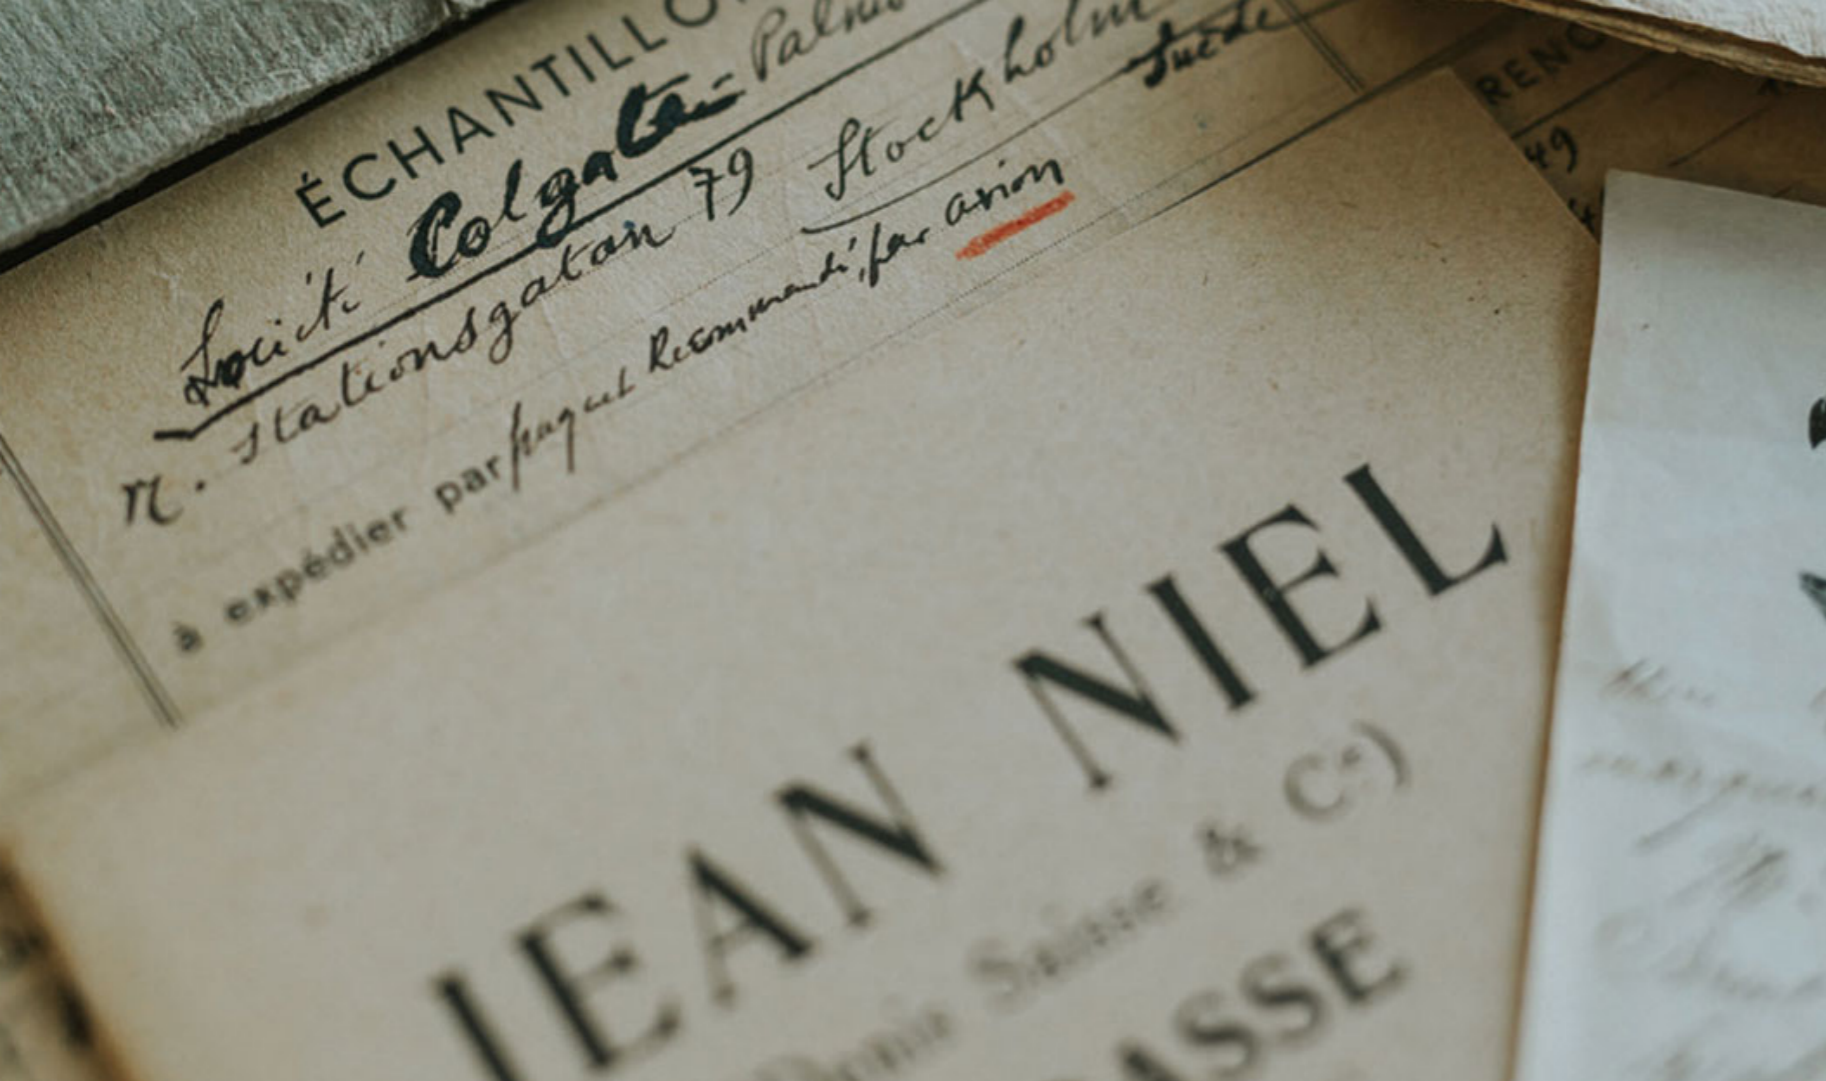 ÉCHANTILLO
Société Colgate - Palmo
n. Stationsgatan 79 Stockholm
Suède
à expédier par paquet Recommandé, par avion
JEAN NIEL
Denis Saisse & Cⁱᵉ)
ASSE
RENC
49